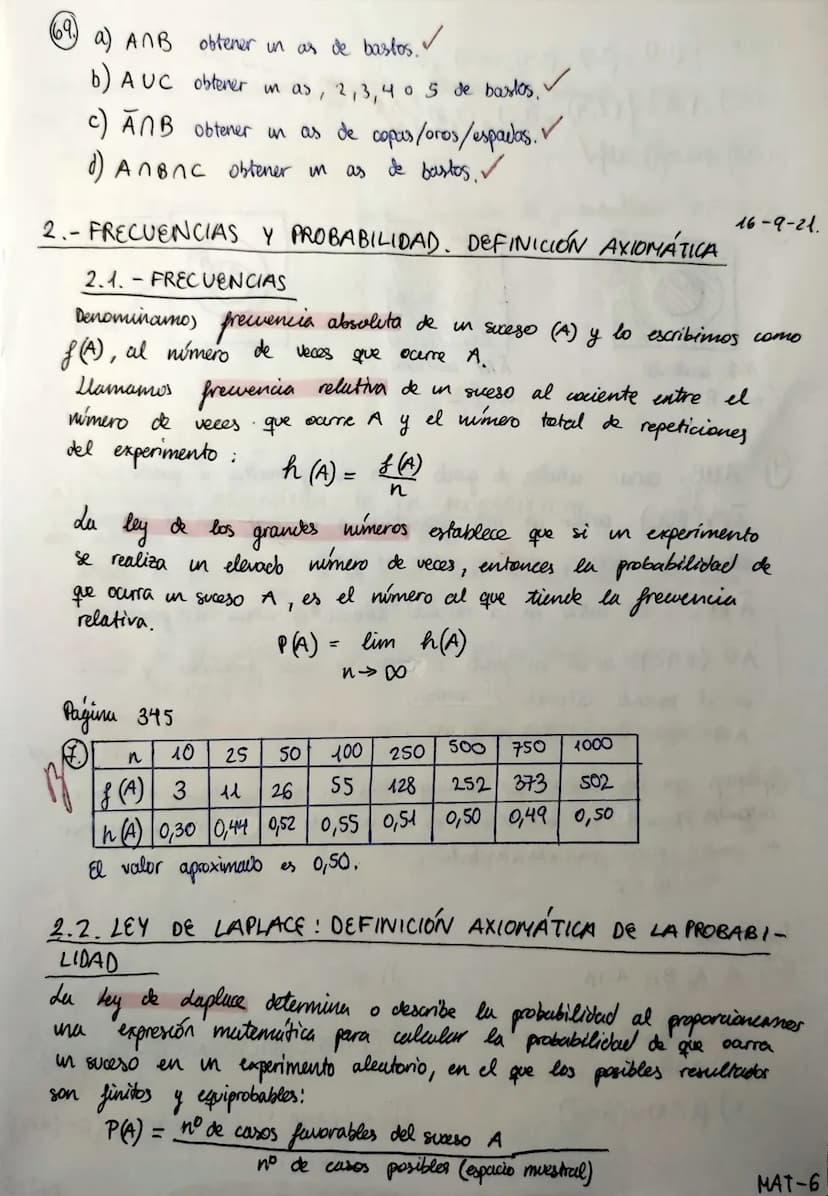 69. a) A∩B obtener un as de bastos. ✓
b) A∪C obtener un as, 2, 3, 4 o 5 de bastos. ✓
c) Ā∩B obtener un as de copas/oros/espadas. ✓
d) A∩B∩C obtener un as de bastos. ✓
16-9-21.
2.- FRECUENCIAS Y PROBABILIDAD. DEFINICIÓN AXIOMÁTICA
2.1. - FRECUENCIAS
Denominamos frecuencia absoluta de un suceso (A) y lo escribimos como
f(A), al número de veces que ocurre A.
Llamamos frecuencia relativa de un suceso al cociente entre el
número de veces que ocurre A y el número total de repeticiones
del experimento:
h(A) = f(A)/n
La ley de los grandes números establece que si un experimento
se realiza un elevado número de veces, entonces la probabilidad de
que ocurra un suceso A, es el número al que tiende la frecuencia
relativa.
P(A) = lim h(A)
n→∞
Página 345
7. n 10 25 50 100 250 500 750 1000
f(A) 3 11 26 55 128 252 373 502
h(A) 0,30 0,44 0,52 0,55 0,51 0,50 0,49 0,50
El valor aproximado es 0,50.
2.2. LEY DE LAPLACE: DEFINICIÓN AXIOMÁTICA DE LA PROBABI-
LIDAD
La Ley de Laplace determina o describe la probabilidad al proporcionarnos
una expresión matemática para calcular la probabilidad de que ocurra
un suceso en un experimento aleatorio, en el que los posibles resultados
son finitos y equiprobables:
P(A) = nº de casos favorables del suceso A
nº de casos posibles (espacio muestral)
MAT-6